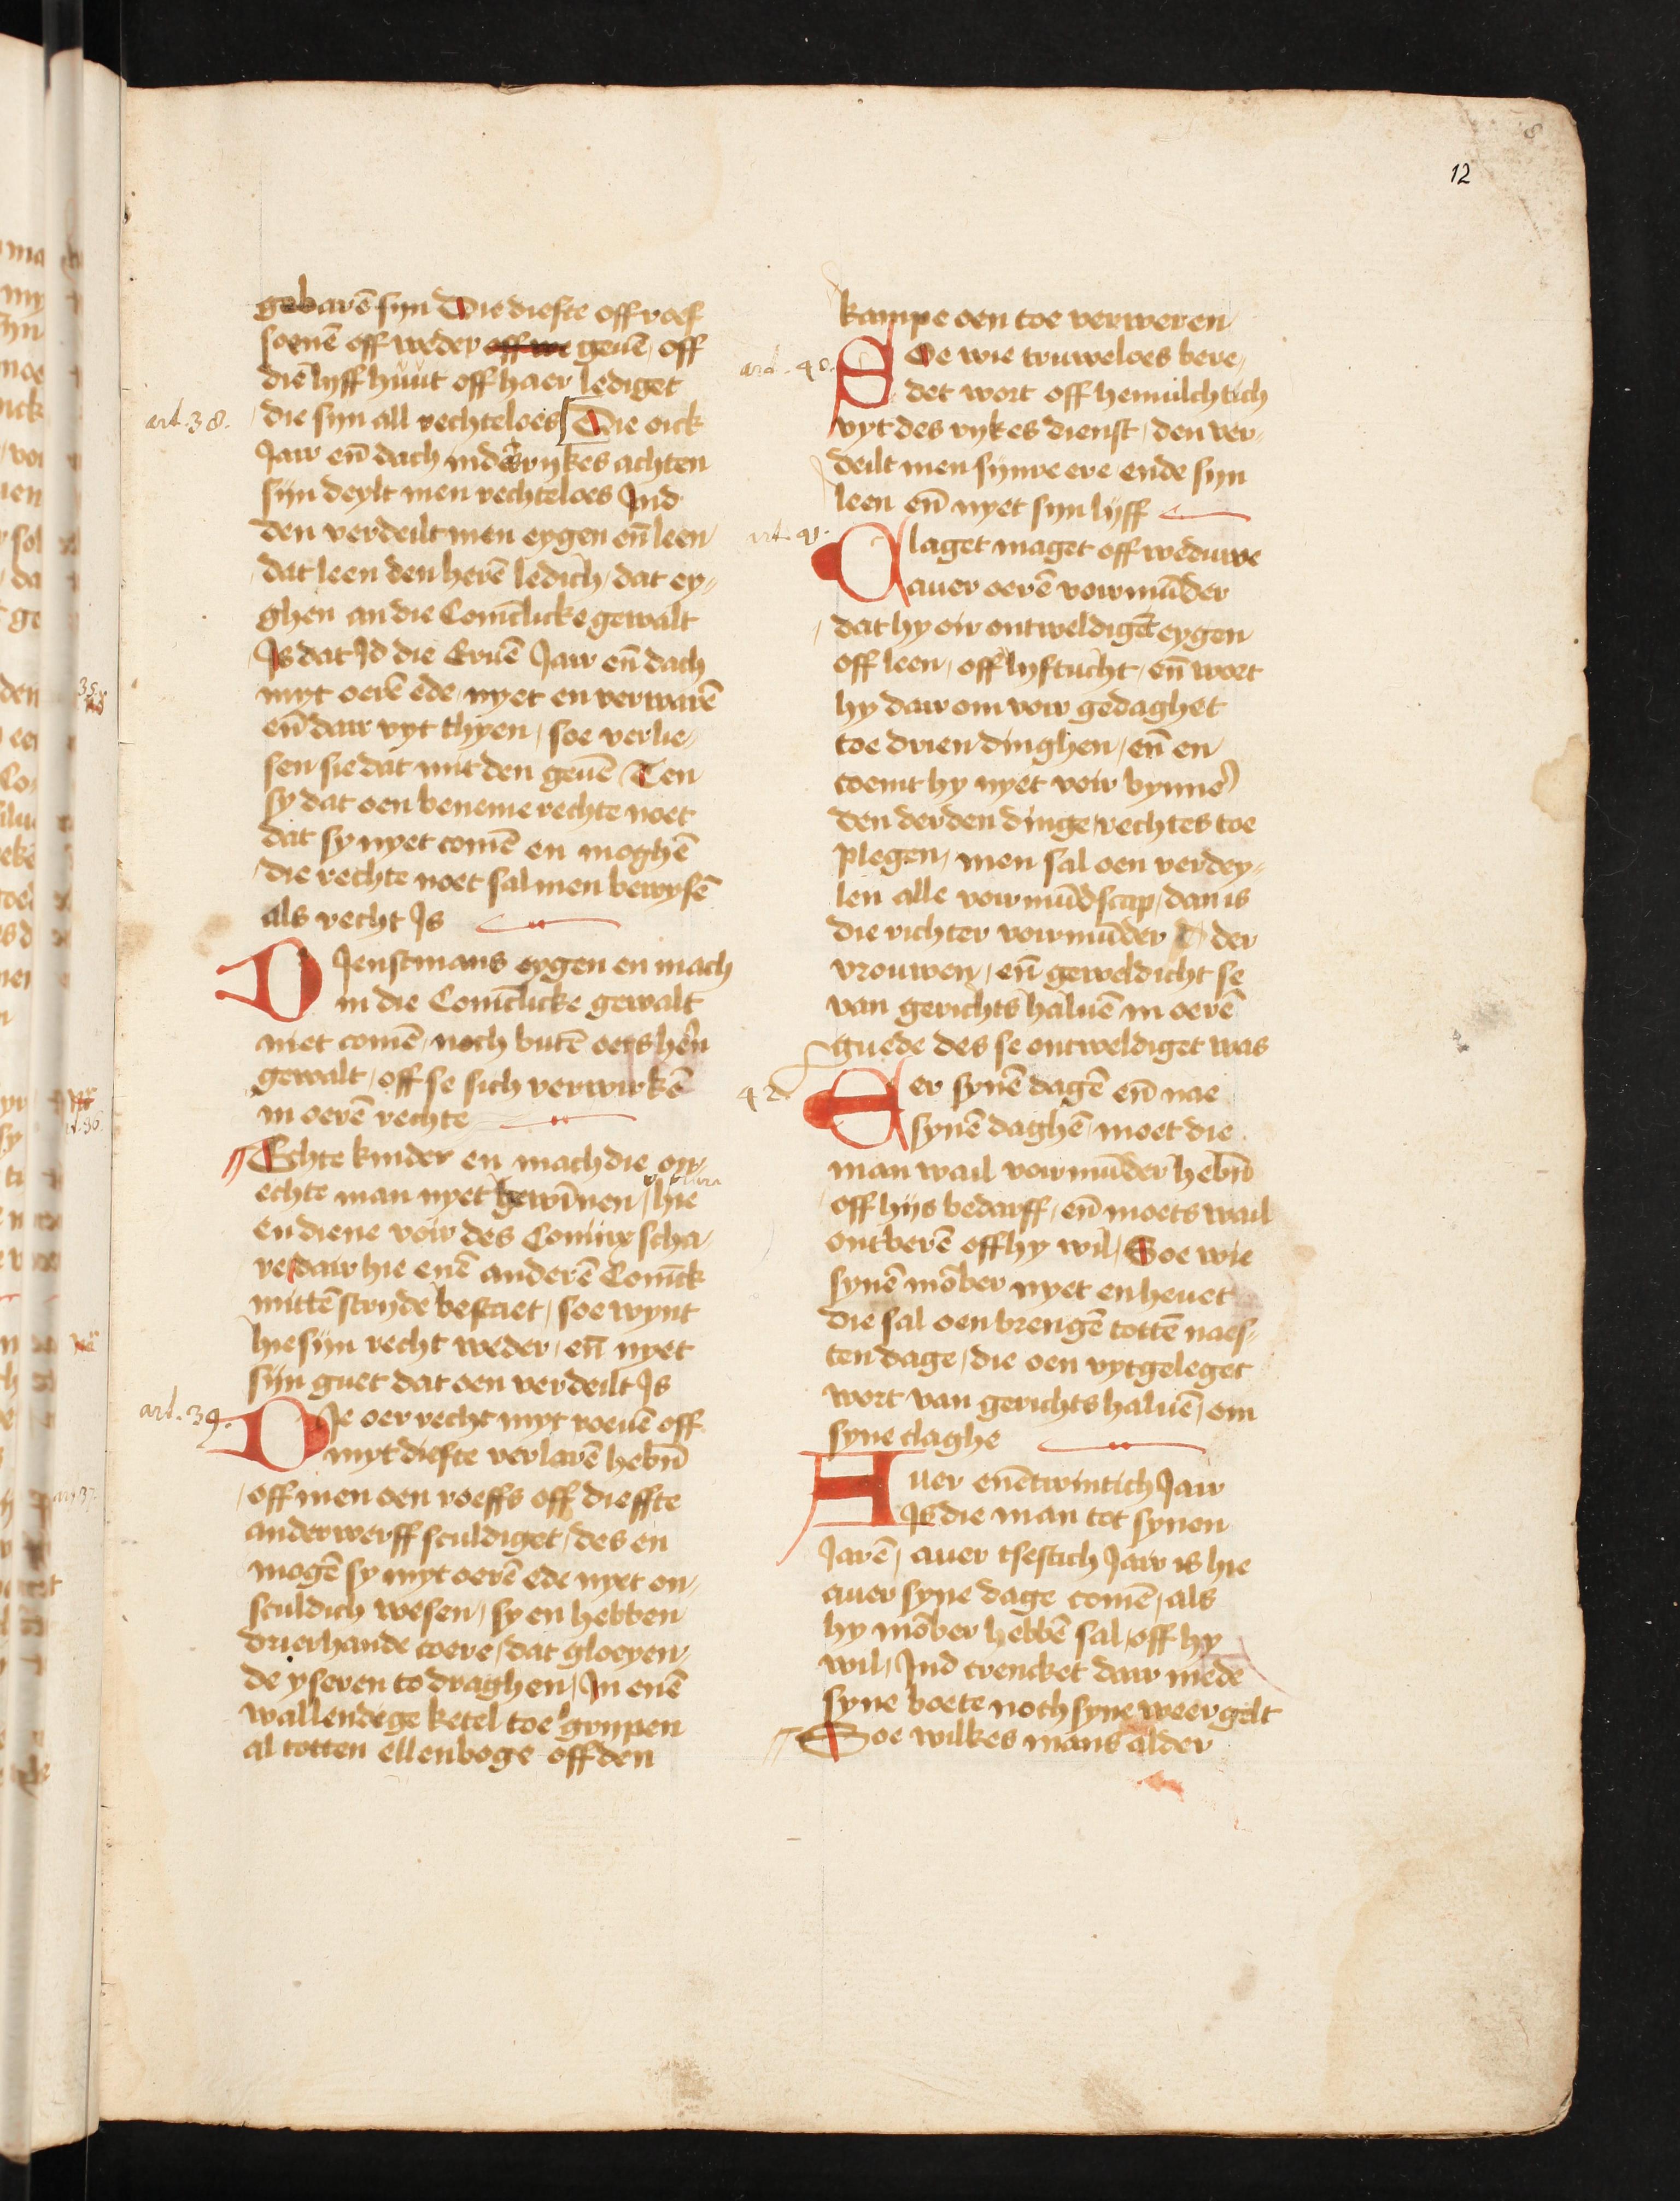 12
gebarē sijn Die diefte off roef
soenē off weder off we geuē / off
diē lyff huut off haer lediget
art. 38.
die sijn all rechteloes Die oick
Jair eñ dach in des rijkes achten
sijn deylt men rechteloes Ind
den verdeilt men eygen eñ leen /
dat leen den herē ledich / dat ey-
ghen an die Coniclicke gewalt
Is dat Id die Eruē Jair eñ dach
myt oerē ede nyet en verwarē
eñ dair vyt thyen / soe verlie-
sen sie dat mit den geuē Ten
sy dat oen beneme rechte noet
dat sy nyet comē en moghē
die rechte noet sal men bewysē
als recht Is
DJenstmans eygen en mach
in die Coniclicke gewalt
niet comē / noch butē oers herē
gewalt / off se sich verwirkē
in oerē rechte
Echte kinder en mach die on-
echte man nyet gewīnen / hie
en diene voir des Coninx scha-
re / dair hie enē anderē Coninck
mittē stryde bestaet / soe wynt
hie sijn recht weder / eñ nyet
sijn guet dat oen verdeilt Is
art. 39.
DIe oer recht myt roeuē off
myt diefte verlarē hebñ
off men oen roeffs off dieffte
anderwerff sculdiget / des en
mogē sy myt oerē ede nyet on-
sculdich wesen / sy en hebben
drierhande coere / dat gloeyen-
de yseren to draghen / In enē
wallendege ketel toe grypen
al totten ellenboge off den
kampe oen toe verweren
art. 40.
SOe wie truweloes bere-
det wort off hemilchtich
vyt des rykes dienst / den ver-
deilt men sijnre ere ende sijn
leen eñ nyet sijn lijff
art. 41.
Claget maget off weduwe
auer oerē voirmūder
dat hy oir ontweldiget eygen
off leen / off lyftucht / eñ wort
hy dair om voir gedaghet
toe drien dinghen / eñ en
coemt hy nyet voir bynnē
den derden dinge rechtes toe
plegen / men sal oen verdey-
len alle voirmūdscap / dan is
die richter voirmūder der
vrouwen / eñ geweldicht se
van gerichts haluē in oerē
guede des se ontweldiget was
42.
Eer synē dagē eñ nae
synē daghē moet die
man wail voirmūder hebñ
off hijs bedarff / eñ moets wail
ontberē off hy wil / Soe wie
synē mōber nyet en heuet
die sal oen brengē tottē naes-
ten dage / die oen vytgeleget
wort van gerichts haluē / om
syne claghe
Auer enētwintich Jair
Is die man tot synen
Jarē / auer tsestich Jair is hie
auer syne dage comē / als
hy mōber hebbē sal / off hy
wil / Ind crencket dair mede
syne boete noch syne weergelt
Soe wilkes mans alder